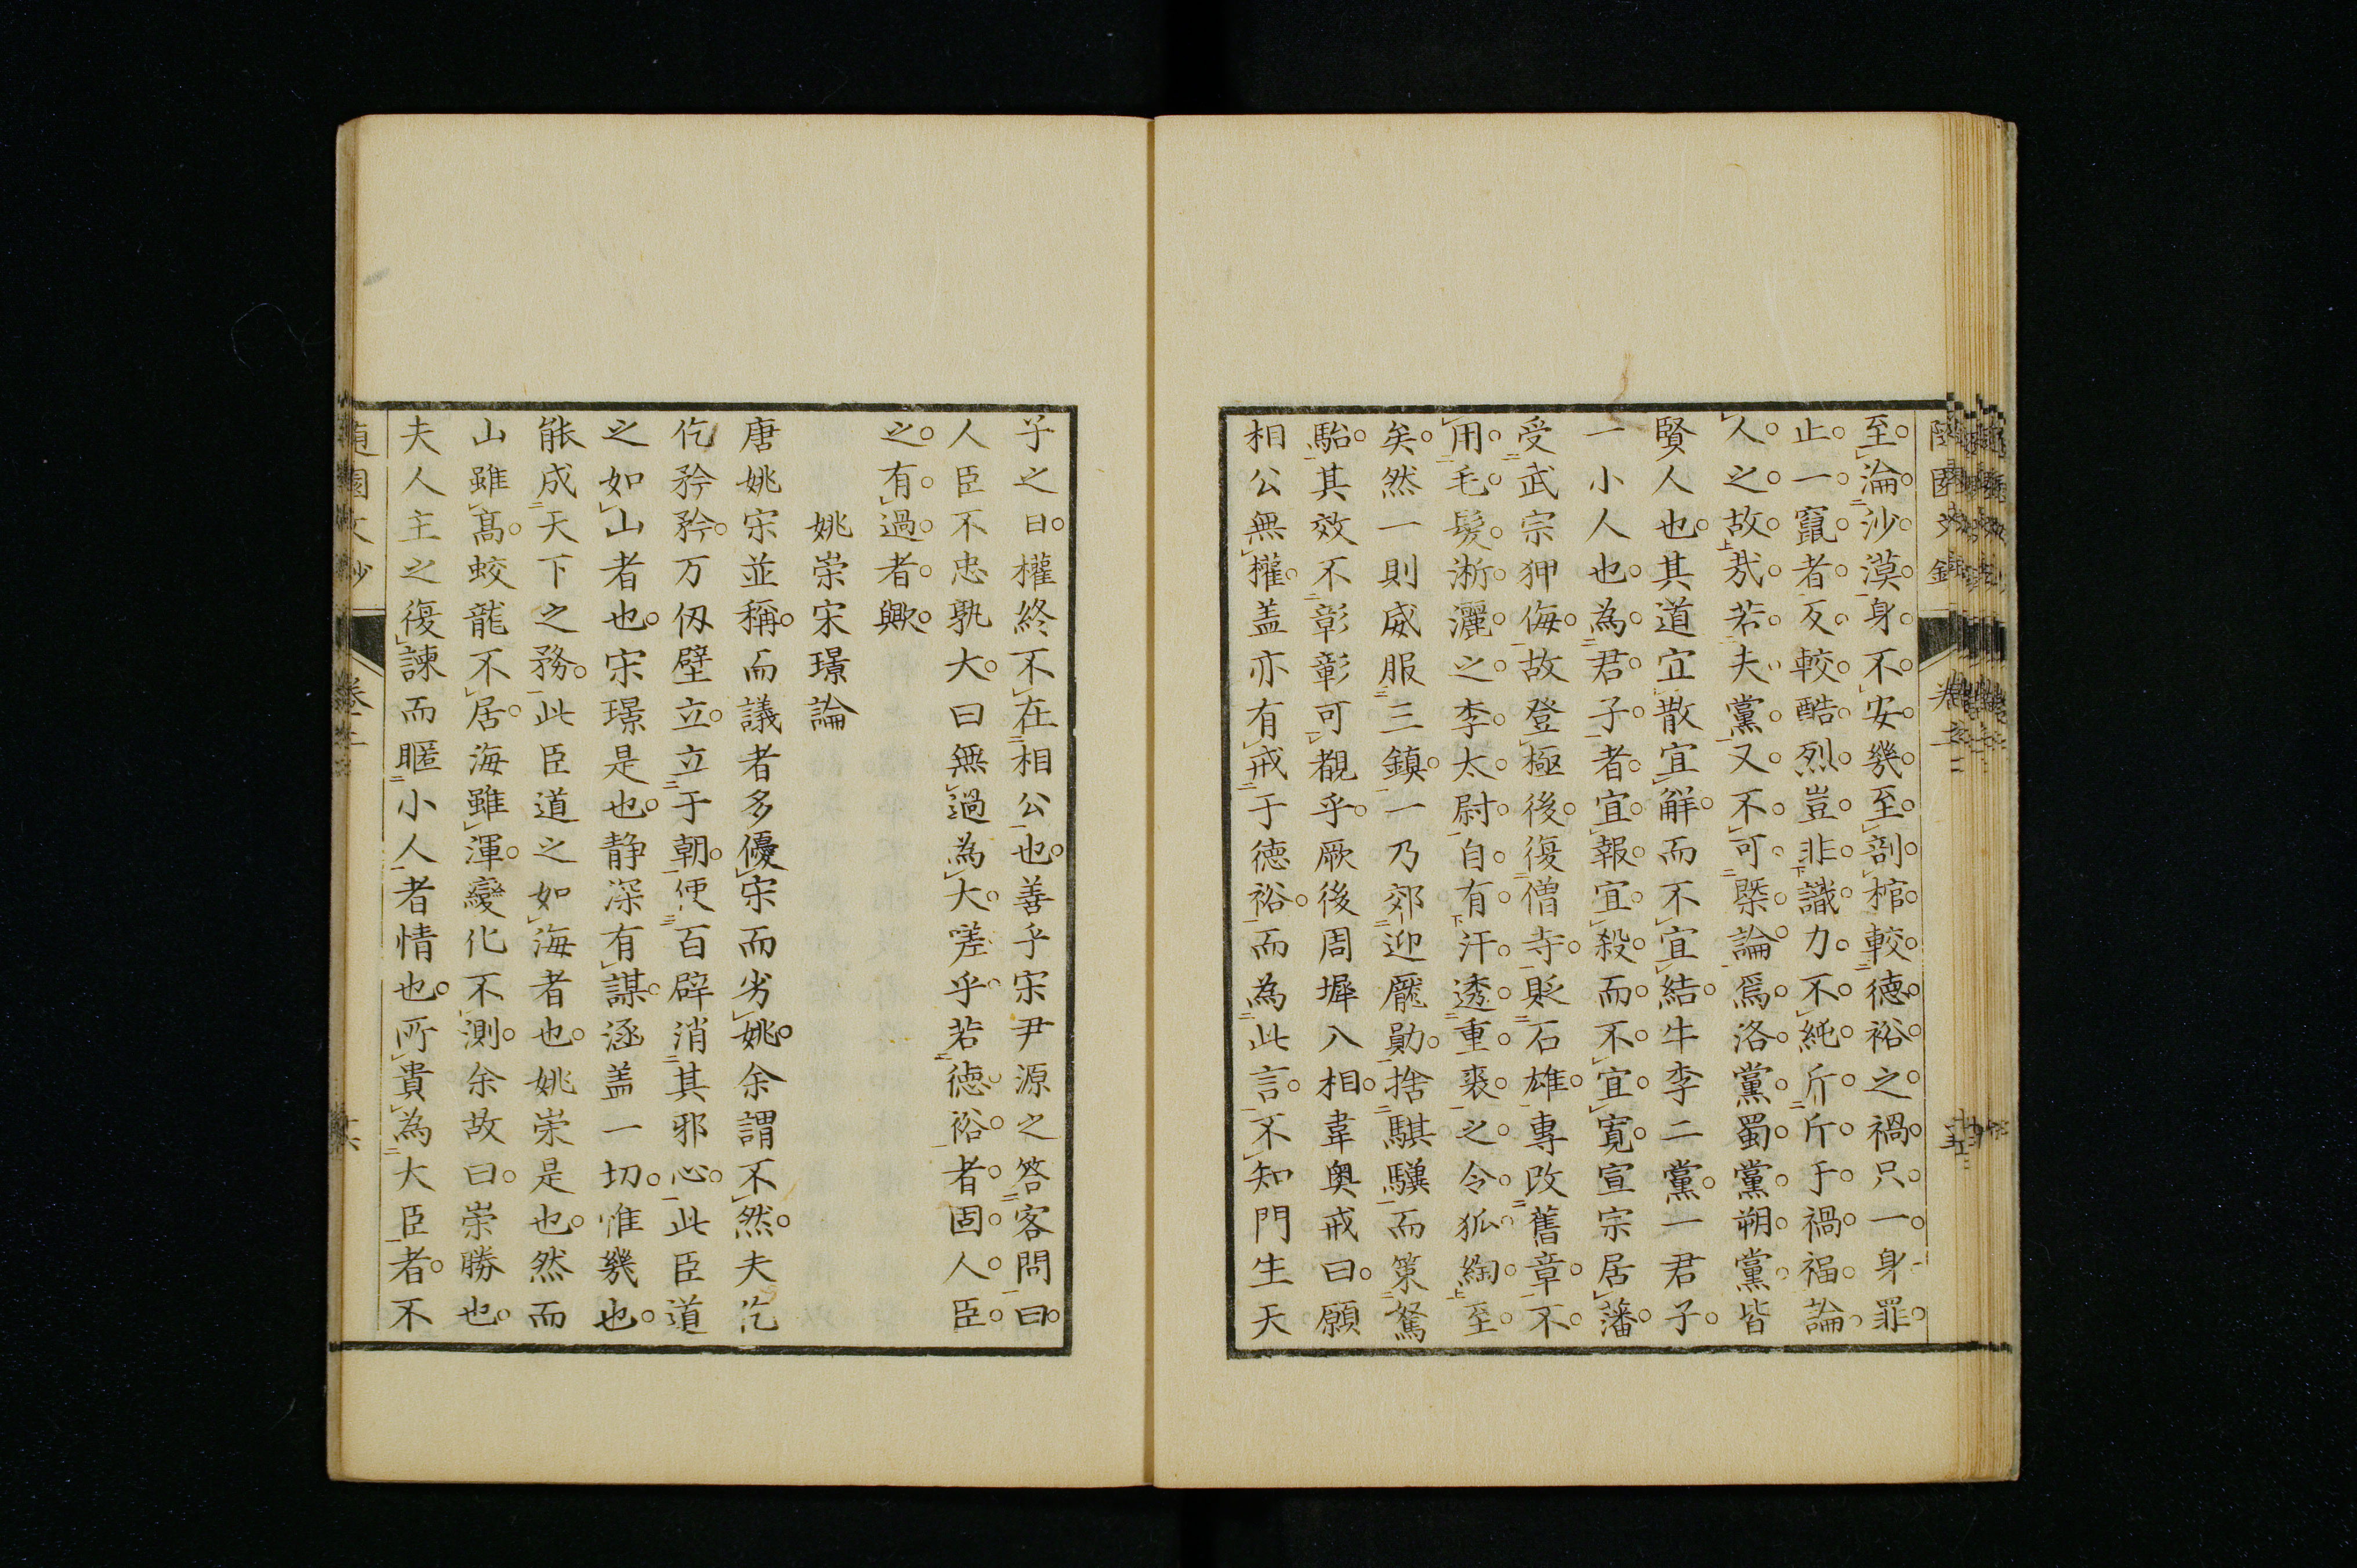 至淪沙漠身不安幾至剖棺較德裕之禍只一身罪
止一竄者反較酷烈豈非識力不純斤斤于禍福論
人之故哉若夫黨又不可槩論爲洛黨蜀黨朔黨皆
賢人也其道宜散宜解而不宜結牛李二黨一君子
一小人也為君子者宜報宜殺而不宜寬宣宗居藩
受武宗狎侮故登極後復僧寺貶石雄專改舊章不
用毛髮淅灑之李太尉自有汗透重裘之令狐綯至
矣然一則威服三鎮一乃郊迎龎勛捨騏驥而策駑
駘其效不彰彰可覩乎厥後周墀入相韋奥戒曰願
相公無權盖亦有戒于德裕而為此言不知門生天
子之曰權終不在相公也善乎宋尹源之答客問曰
人臣不忠孰大曰無過為大嗟乎若德裕者固人臣
之有過者歟
姚崇宋璟論
唐姚宋並稱而議者多優宋而劣姚余謂不然夫仡
仡矜矜万仭壁立立于朝使百辟消其邪心此臣道
之如山者也宋璟是也静深有謀涵盖一切惟幾也
能成天下之務此臣道之如海者也姚崇是也然而
山雖髙蛟龍不居海雖渾變化不測余故曰崇勝也
夫人主之復諫而暱小人者情也所貴為大臣者不